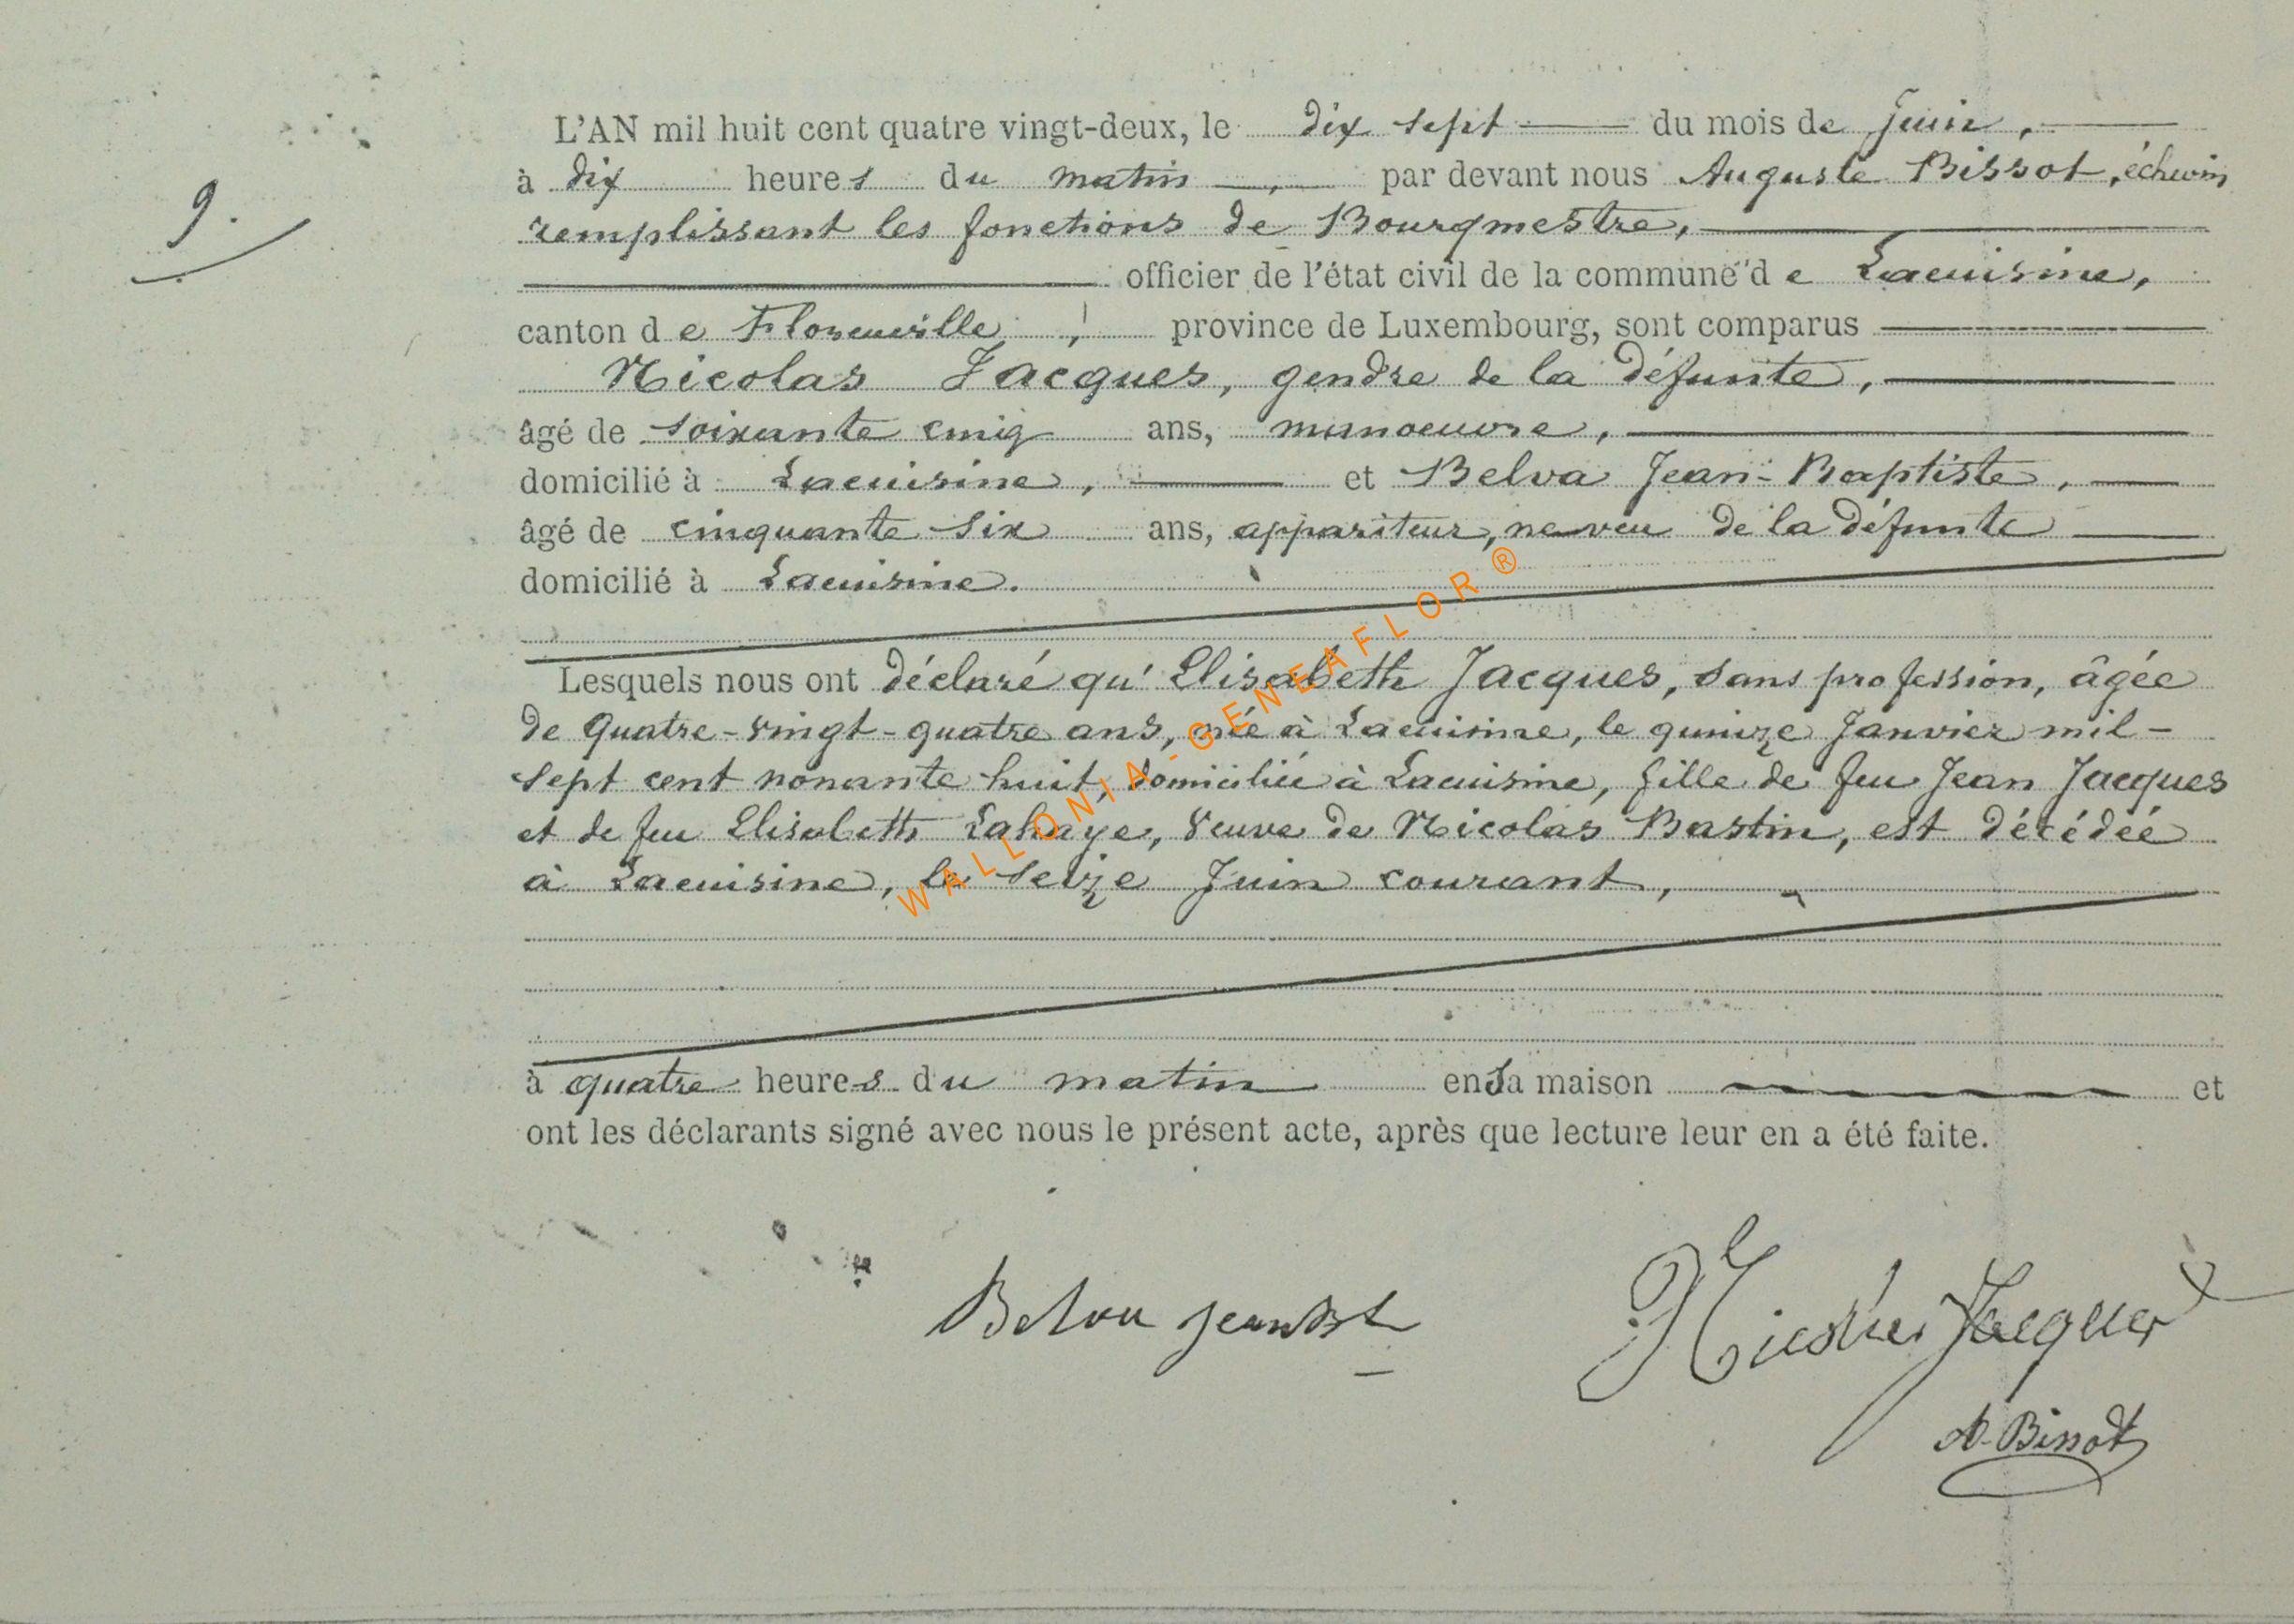 9.
L'AN mil huit cent quatre vingt-deux, le dix sept du mois de Juin,
à dix heures du matin, par devant nous Auguste Bissot, échevin
remplissant les fonctions de Bourgmestre,
officier de l'état civil de la commune de Lacuisine,
canton de Florenville, province de Luxembourg, sont comparus
Nicolas Jacques, gendre de la défunte,
âgé de soixante cinq ans, manoeuvre,
domicilié à Lacuisine, et Belva Jean-Baptiste,
âgé de cinquante six ans, appariteur, neveu de la défunte
domicilié à Lacuisine.
Lesquels nous ont déclaré qu'Elisabeth Jacques, sans profession, âgée
de quatre-vingt-quatre ans, née à Lacuisine, le quinze Janvier mil-
sept cent nonante huit, domiciliée à Lacuisine, fille de feu Jean Jacques
et de feu Elisabeth Lahaye, veuve de Nicolas Bastin, est décédée
à Lacuisine, le seize Juin courant,
à quatre heures du matin en sa maison et
ont les déclarants signé avec nous le présent acte, après que lecture leur en a été faite.
Belva jeanBt Nicolas Jacques
A. Bissot
WALLONIA-GENEAFLOR®